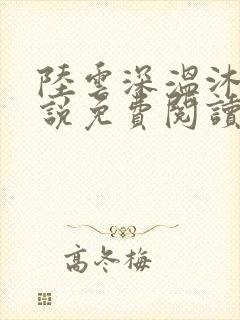 陸雲深溫沐
說免費閱讀
高冬梅